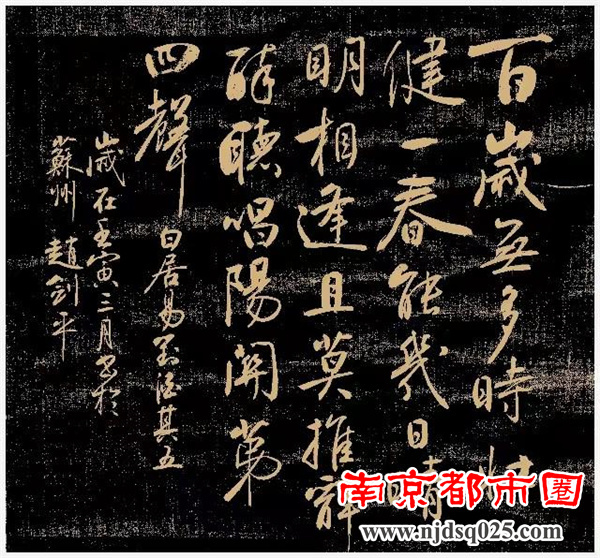 百歲無多時壯
健一春能幾日晴
明相逢且莫推辭
醉聽唱陽關第
四聲 白居易對酒其五
歲在壬寅三月書於
蘇州 趙劍平
南京都市圈
www.njdsq025.com